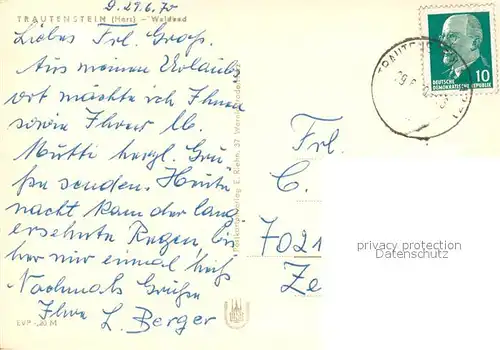 D. 29.6.70
TRAUTENSTEIN (Harz) – Waldbad
Liebes Frl. Groß.
Aus meinen Urlaubs
ort möchte ich Ihnen
sowie Ihrer lb.
Mutti herzl. Grü
ße senden. Heute
nacht kam der lang
ersehnte Regen, bis
her nur einmal heiß
Nochmals Grüße
Ihre L. Berger
EVP -,20 M
Verlag E. Riehn, 37 Wernigerode
TRAUTENSTEIN
DEUTSCHE
DEMOKRATISCHE REPUBLIK
10
Frl.
C.
7021
Ze
privacy protection
Datenschutz